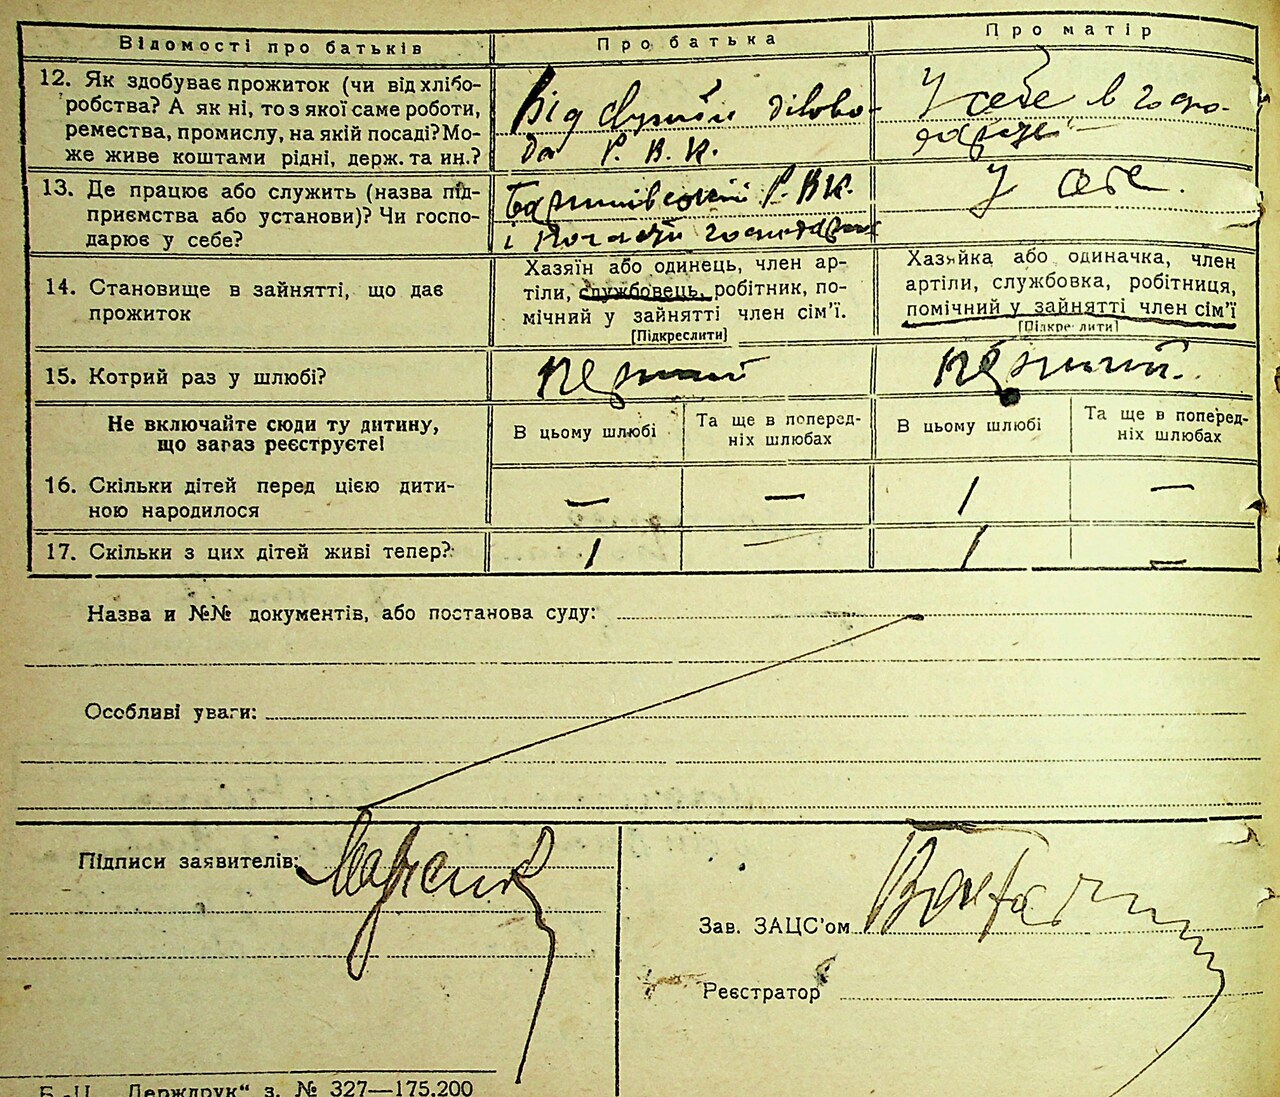 Відомості про батьків
Про батька
Про матір
12. Як здобуває прожиток (чи від хлібо-
робства? А як ні, то з якої саме роботи,
ремества, промислу, на якій посаді? Мо-
же живе коштами рідні, держ. та ин.?
Від служби діловo-
да Р. В. К.
У себе в госпо-
13. Де працює або служить (назва під-
приємства або установи)? Чи госпо-
дарює у себе?
Р. В К.
і
У себе.
14. Становище в зайнятті, що дає
прожиток
Хазяїн або одинець, член ар-
тіли, службовець, робітник, по-
мічний у зайнятті член сім'ї.
[Підкреслити]
Хазяйка або одиначка, член
артіли, службовка, робітниця,
помічний у зайнятті член сім'ї
[Підкреслити]
15. Котрий раз у шлюбі?
перший
перший.
Не включайте сюди ту дитину,
що зараз реєструєте!
В цьому шлюбі
Та ще в поперед-
ніх шлюбах
В цьому шлюбі
Та ще в поперед-
ніх шлюбах
16. Скільки дітей перед цією дити-
ною народилося
—
—
1
—
17. Скільки з цих дітей живі тепер?
1
—
1
—
Назва и №№ документів, або постанова суду:
Особливі уваги:
Підписи заявителів:
Зав. ЗАЦС'ом
Реєстратор
Б.-Ц. „Держдрук“ з. № 327—175.200